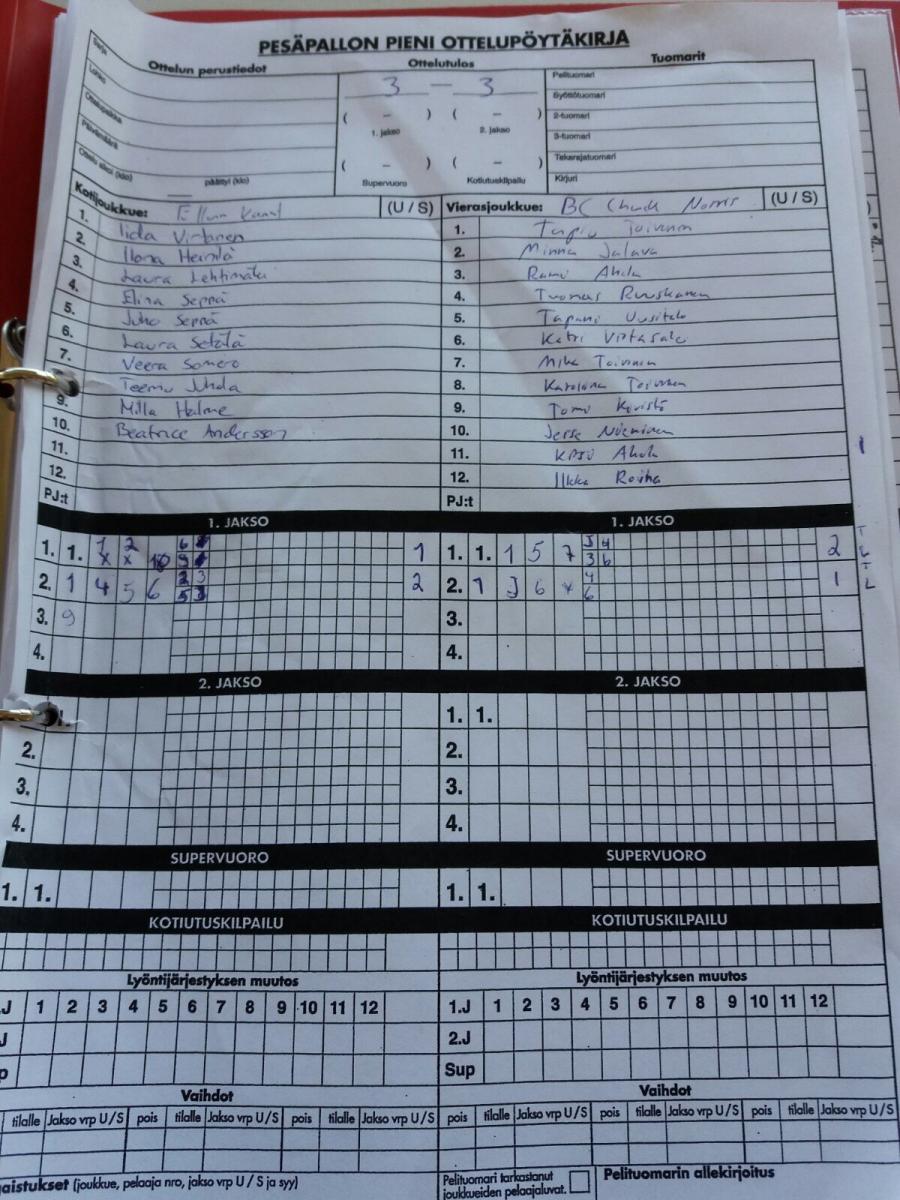 PESÄPALLON PIENI OTTELUPÖYTÄKIRJA
Ottelun perustiedot Ottelutulos Tuomarit
Sarja
Lohko
Ottelupaikka
Päivämäärä
Ottelu alkoi (klo) päättyi (klo)
3 – 3
( – ) ( – )
1. jakso 2. jakso
( – ) ( – )
Supervuoro Kotiutuskilpailu
Pelituomari
Syöttötuomari
2-tuomari
3-tuomari
Takarajatuomari
Kirjuri
Kotijoukkue: (U / S)
1. Iida Virtanen
2. Ilona Heinilä
3. Laura Lehtimäki
4. Elina Seppä
5. Juho Seppä
6. Laura Setälä
7. Veera Somero
Teemu Juhola
9. Milla Helme
10. Beatrice Andersson
11.
12.
PJ:t
Vierasjoukkue: BC Chuck Norris (U / S)
1. Toivonen
2. Minna Jalava
3. Ahola
4. Tuomas Ruuskanen
5. Tapani Uusitalo
6. Katri Virtasalo
7. Mika Toivonen
8. Karoliina Toivonen
9. Tomi Koivisto
10. Jesse Nieminen
11. Ahola
12. Ilkka Roiha
PJ:t
1. JAKSO 1. JAKSO
1. 1. 1 2 10 1 1. 1. 1 5 7 3 4 3 6 2
2. 1 4 5 6 2 3 5 2 2. 1 3 6 4 6 1
3. 9 3.
4. 4.
2. JAKSO 2. JAKSO
1. 1. 1.
2. 2.
3. 3.
4. 4.
SUPERVUORO SUPERVUORO
1. 1. 1. 1.
KOTIUTUSKILPAILU KOTIUTUSKILPAILU
Lyöntijärjestyksen muutos Lyöntijärjestyksen muutos
.J 1 2 3 4 5 6 7 8 9 10 11 12 1.J 1 2 3 4 5 6 7 8 9 10 11 12
J 2.J
p Sup
Vaihdot Vaihdot
tilalle Jakso vrp U / S pois tilalle Jakso vrp U / S pois tilalle Jakso vrp U / S pois tilalle Jakso vrp U / S pois tilalle Jakso vrp U / S pois tilalle Jakso vrp U / S
gaistukset (joukkue, pelaaja nro, jakso vrp U / S ja syy)
Pelituomari tarkastanut joukkueiden pelaajaluvat.
Pelituomarin allekirjoitus